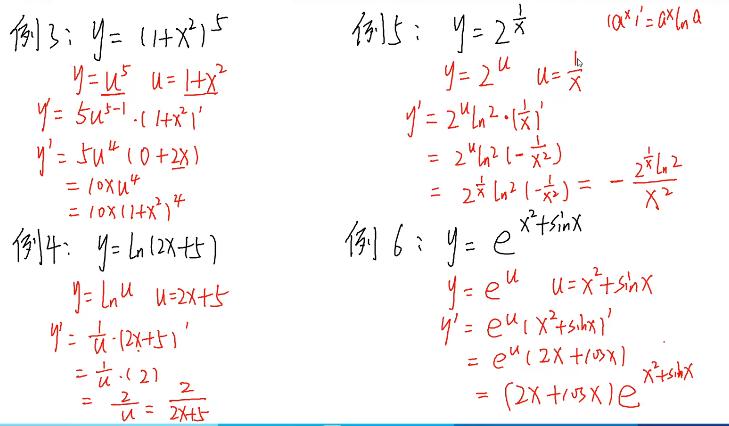 例3: y = (1+x²)⁵
y = u⁵ u = 1+x²
y' = 5u⁵⁻¹·(1+x²)'
y' = 5u⁴(0+2x)
= 10xu⁴
= 10x(1+x²)⁴
例4: y = ln(2x+5)
y = ln u u = 2x+5
y' = 1/u·(2x+5)'
= 1/u·(2)
= 2/u = 2/(2x+5)
例5: y = 2^(1/x) (aˣ)' = aˣ ln a
y = 2ᵘ u = 1/x
y' = 2ᵘ ln2·(1/x)'
= 2ᵘ ln2(-1/x²)
= 2^(1/x) ln2(-1/x²) = - 2^(1/x) ln2/x²
例6: y = e^(x²+sinx)
y = eᵘ u = x²+sinx
y' = eᵘ(x²+sinx)'
= eᵘ(2x+cosx)
= (2x+cosx)e^(x²+sinx)